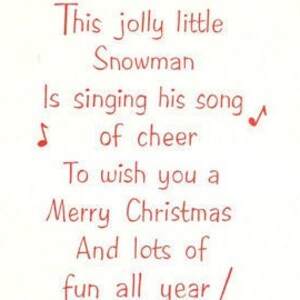 This jolly little
Snowman
Is singing his song
of cheer
To wish you a
Merry Christmas
And lots of
fun all year!